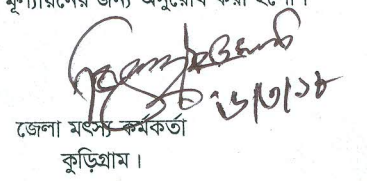 মূল্যায়নের জন্য অনুরোধ করা হলো।
জেলা মৎস্য কর্মকর্তা
কুড়িগ্রাম।